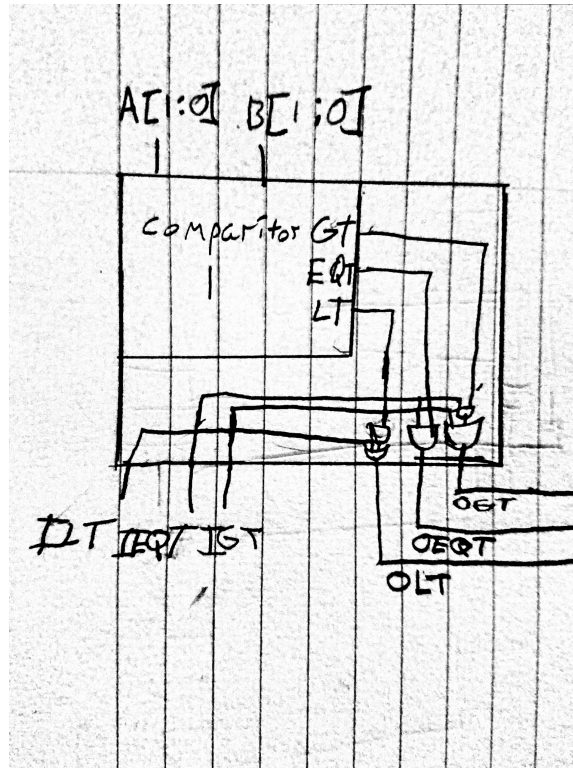 A[1:0] B[1;0]
Comparitor GT
EQT
LT
ILT IEQT IGT
OGT
OEQT
OLT